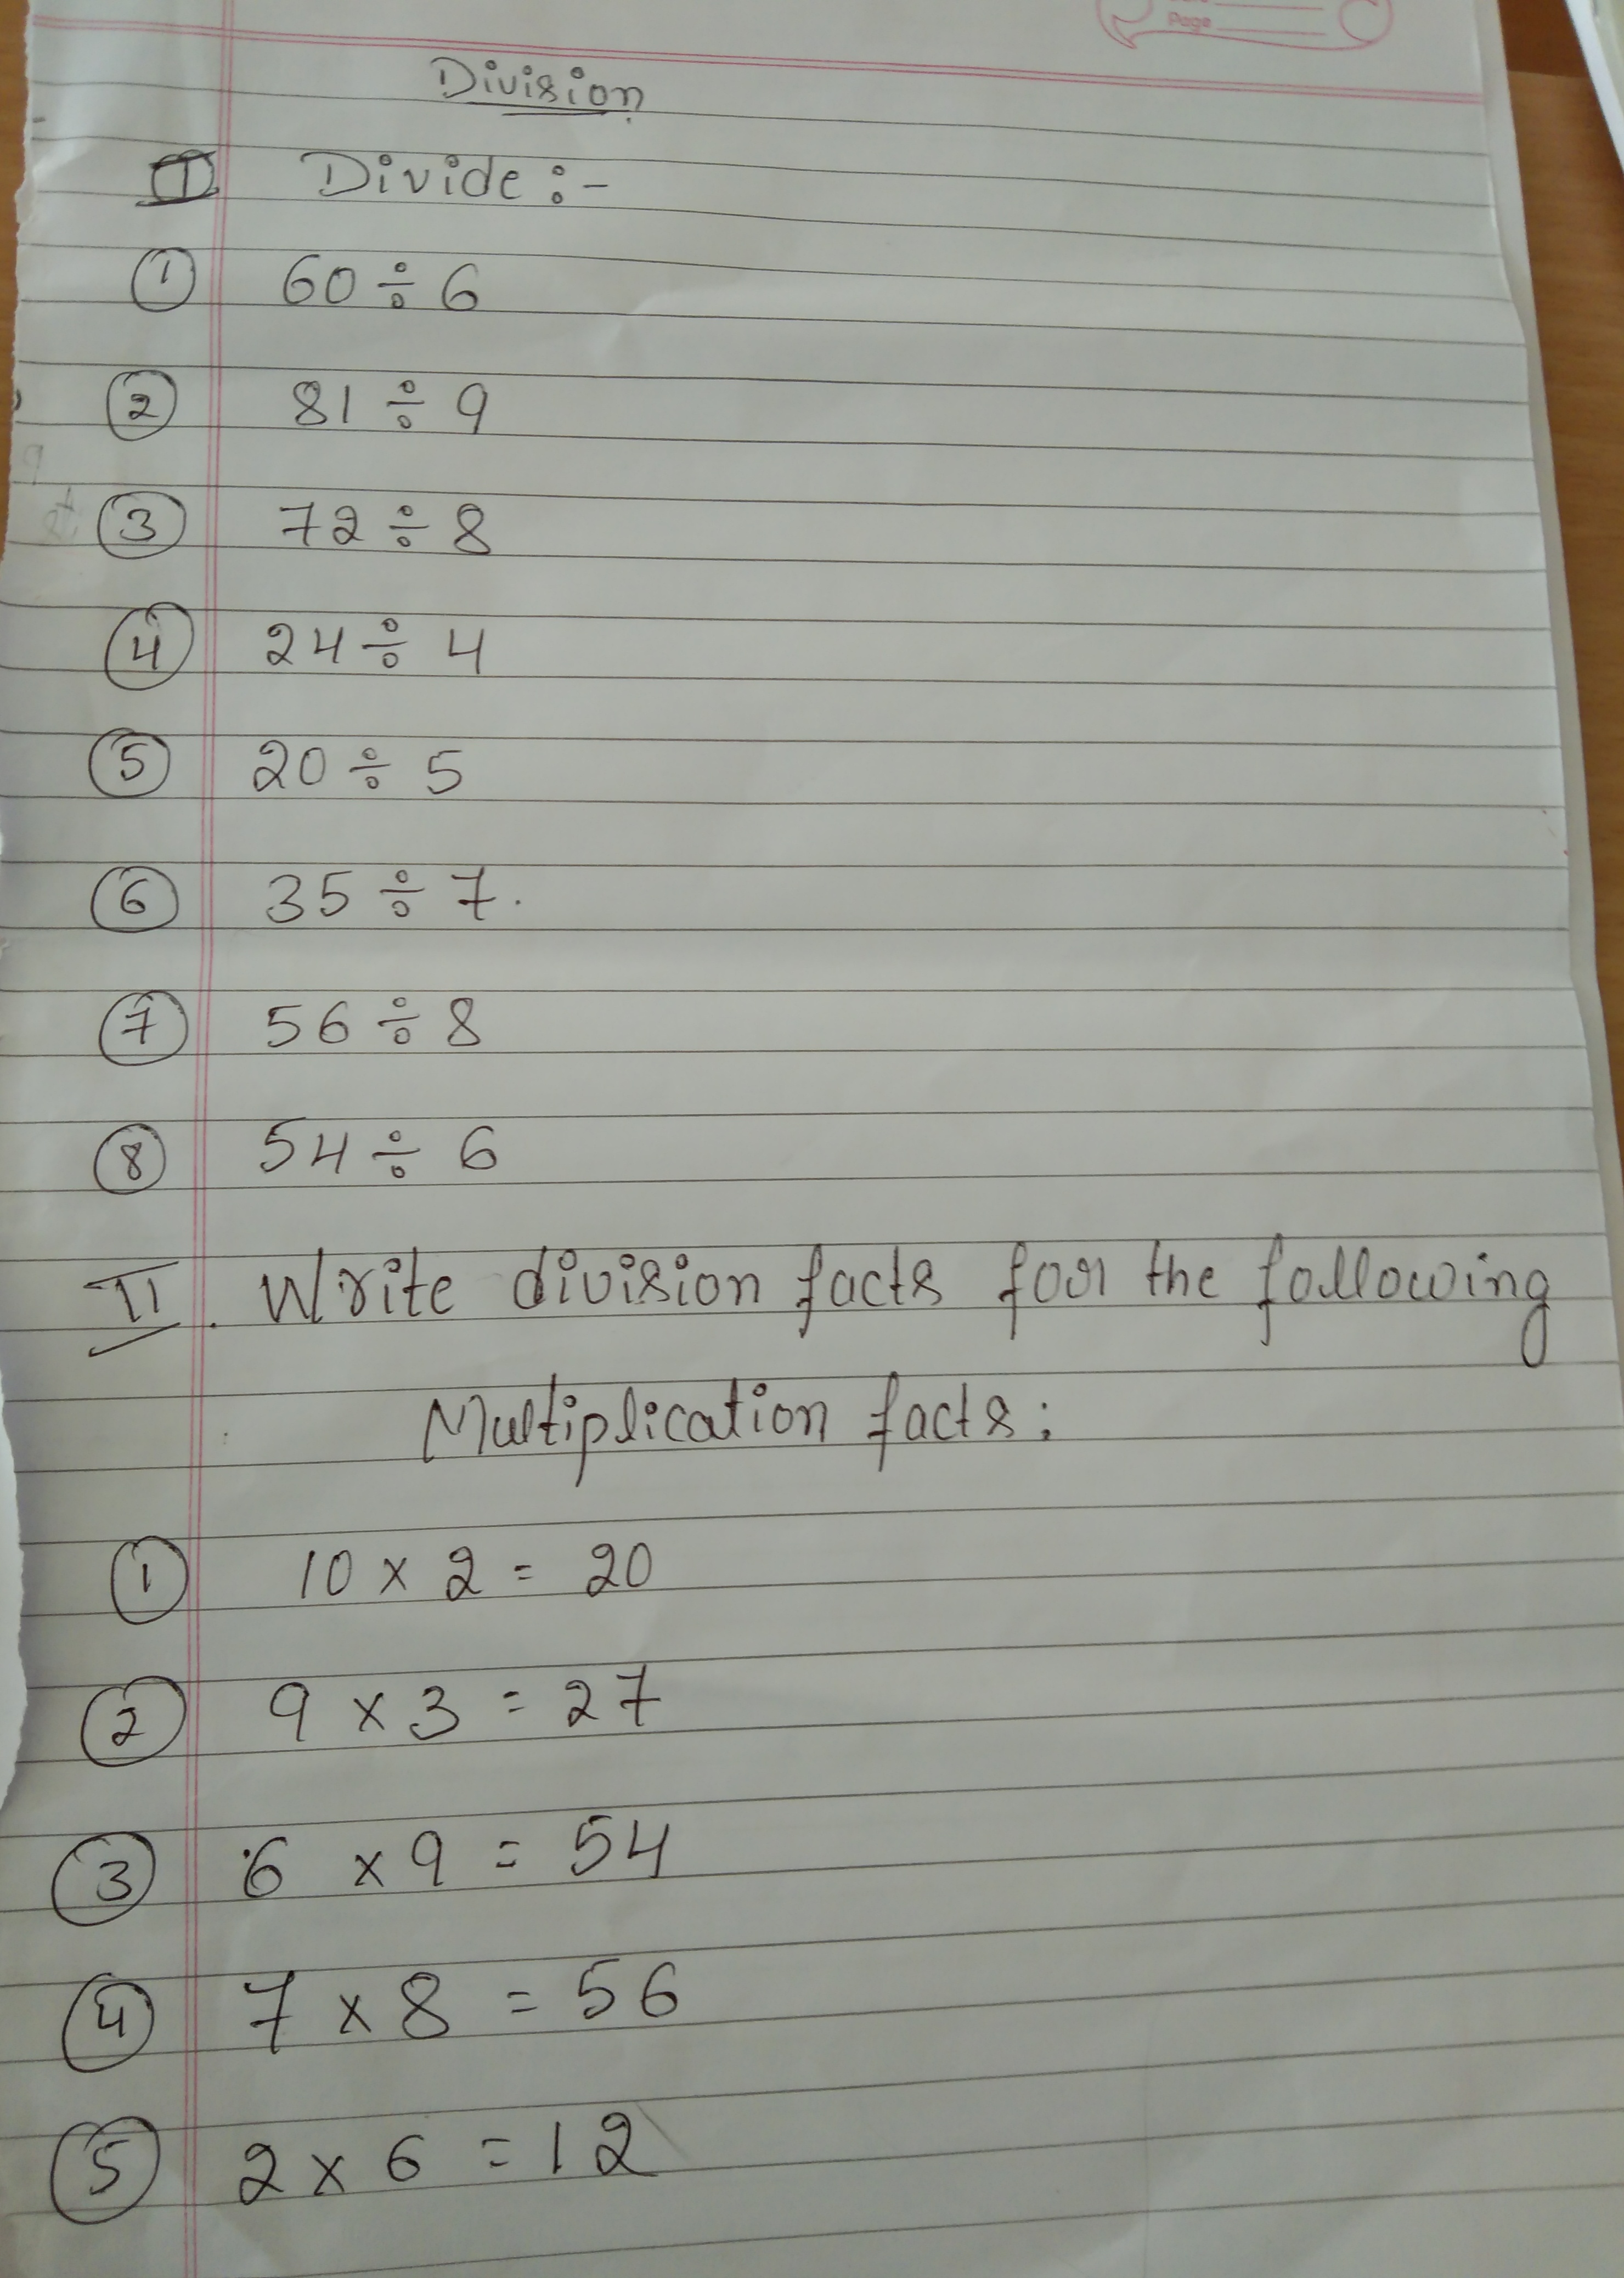 Page
Division
I Divide :-
1 60 ÷ 6
2 81 ÷ 9
3 72 ÷ 8
4 24 ÷ 4
5 20 ÷ 5
6 35 ÷ 7.
7 56 ÷ 8
8 54 ÷ 6
II. Write division facts for the following
Multiplication facts:
1 10 x 2 = 20
2 9 x 3 = 27
3 6 x 9 = 54
4 7 x 8 = 56
5 2 x 6 = 12